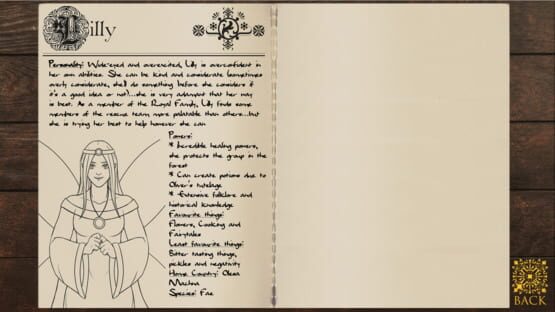 Lilly
Personality: Wide-eyed and overexcited, Lilly is overconfident in
her own abilities. She can be kind and considerate (sometimes
overly considerate, she'll do something before she considers if
it's a good idea or not)...she is very adamant that her way
is best. As a member of the Royal Family, Lilly finds some
members of the rescue team more palatable than others...but
she is trying her best to help however she can
Powers:
* Incredible healing powers,
she protects the group in the
forest
* Can create potions due to
Oliver's tutelage
* Extensive folklore and
historical knowledge
Favourite things:
Flowers, Cooking and
Fairytales
Least favourite things:
Bitter tasting things,
pickles and negativity
Home Country:
Species: Fae
BACK